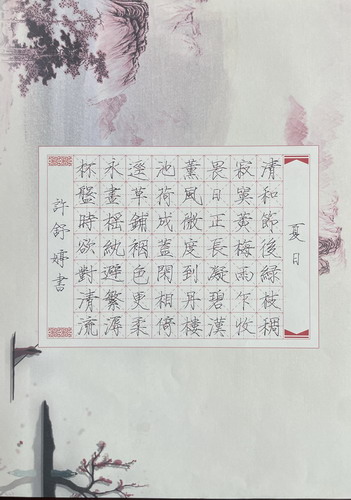 夏日
清和節後綠枝稠
寂寞黃梅雨乍收
畏日正長凝碧漢
薰風微度到丹樓
池荷成蓋閒相倚
逕草鋪裀色更柔
永晝搖紈避繁溽
杯盤時欲對清流
許舒婷書